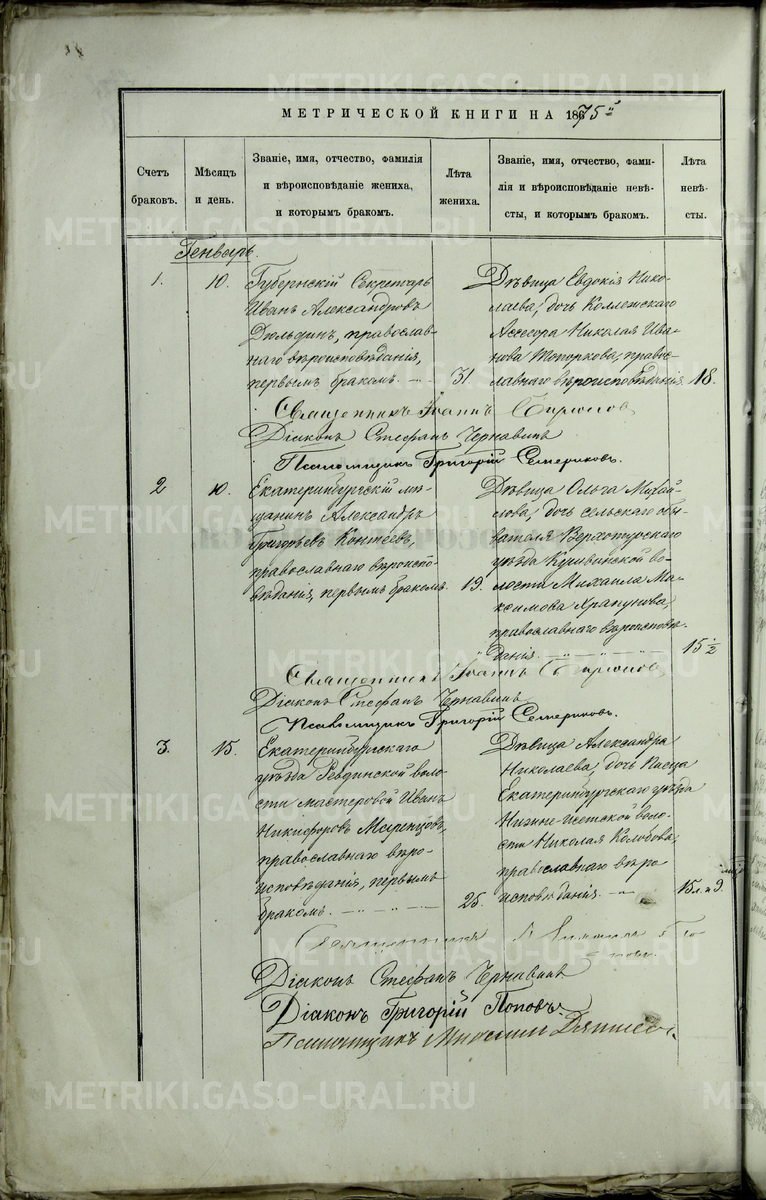 МЕТРИЧЕСКОЙ КНИГИ НА 1875й
Счетъ браковъ.
Мѣсяцъ и день.
Званіе, имя, отчество, фамилія
и вѣроисповѣданіе жениха,
и которымъ бракомъ.
Лѣта жениха.
Званіе, имя, отчество, фами-
лія и вѣроисповѣданіе невѣ-
сты, и которымъ бракомъ.
Лѣта невѣ-
сты.
Генварь.
1.
10.
Губернскій Секретарь
Иванъ Александровъ
Дюльдинъ, православ-
наго вѣроисповѣданія,
первымъ бракомъ.
31.
Дѣвица Евдокія Нико-
лаева, дочь Коллежскаго
Ассесора Николая Ива-
нова Топоркова, правос-
лавнаго вѣроисповѣданія
18.
Священникъ Іоаннъ
Діаконъ Стефанъ Чернавинъ
Псаломщикъ Григорій Семериковъ.
2
10.
Екатеринбургскій мѣ-
щанинъ Александръ
Григорьевъ Коктеевъ,
православнаго вѣроиспо-
вѣданія, первымъ бракомъ.
19.
Дѣвица Ольга Михай-
лова, дочь сельскаго обы-
вателя Верхотурскаго
уѣзда Кушвинской во-
лости Михаила Ма-
ксимова Храпунова,
православнаго вѣроисповѣ-
данія.
15 1/2
Священникъ Іоаннъ
Діаконъ Стефанъ Чернавинъ
Псаломщикъ Григорій Семериковъ.
3.
15.
Екатеринбургскаго
уѣзда Ревдинской воло-
сти мастеровой Иванъ
Никифоровъ Маренцовъ,
православнаго вѣро-
исповѣданія, первымъ
бракомъ.
25.
Дѣвица Александра
Николаева, дочь Писца
Екатеринбургскаго уѣзда
Нижне-Исетской воло-
сти Николая Колобова,
православнаго вѣро
исповѣданія.
15 л. и 9.
Священникъ
Діаконъ Стефанъ Чернавинъ
Діаконъ Григорій Поповъ.
Псаломщикъ
METRIKI.GASO-URAL.RU